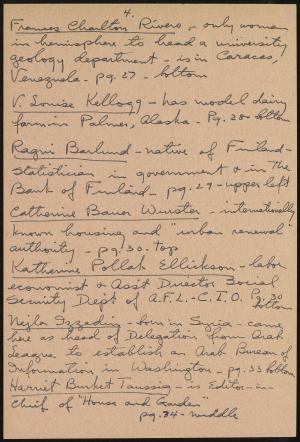 4.
Frances Charlton Rivero, - only woman
in hemisphere to head a university
geology department - is in Caracas,
Venezuela. - pg. 27 - bottom
V. Louise Kellogg - has model dairy
farm in Palmer, Alaska. Pg. 28 - bottom
Ragni Barlund - native of Finland -
statistician in government & in the
Bank of Finland - pg. 29 - upper left
Catherine Bauer Wurster - internationally
known housing and "urban renewal"
authority - pg. 30. top
Katherine Pollak Ellickson - labor
economist & Ass't Director Social
Security Dept of A.F.L. - C.I.O. Pg. 30
bottom
Nejla Izzeding - born in Syria - came
here as head of Delegation from Arab
League to establish an Arab Bureau of
Information in Washington - pg. 33 bottom
Harriet Burket Taussig - is Editor-in-
Chief of "House and Garden"
pg. 34 - middle